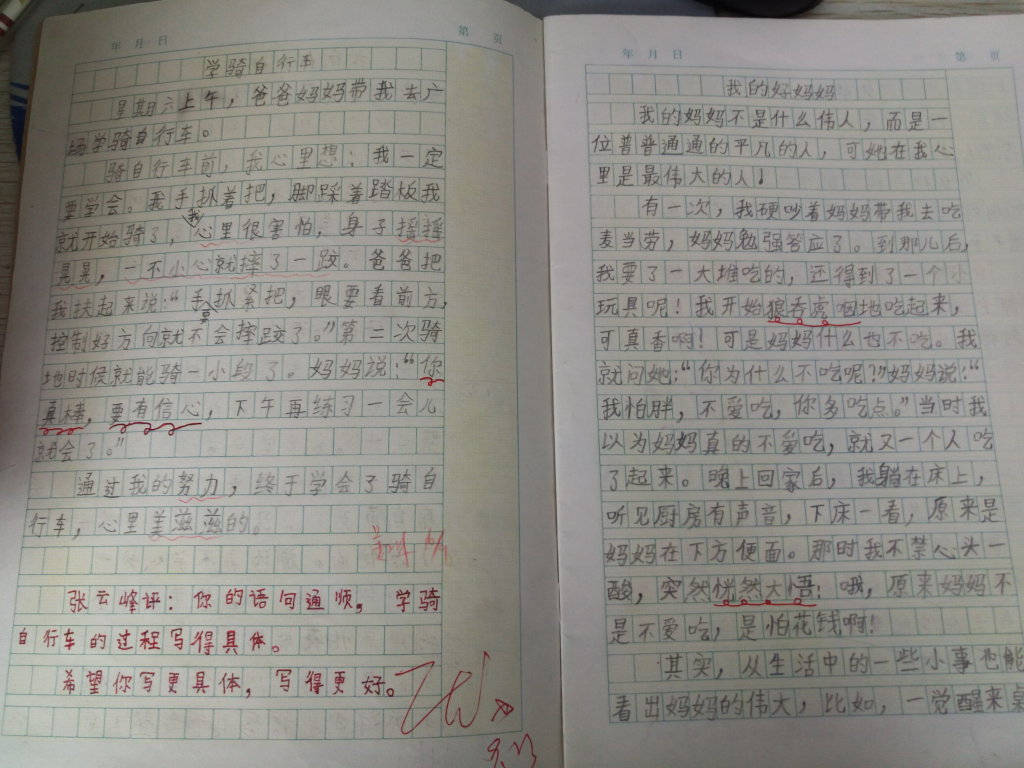 年 月 日
第 页
学骑自行车
星期六上午，爸爸妈妈带我去广
场学骑自行车。
骑自行车前，我心里想：我一定
要学会。我手抓着把，脚踩着踏板我
就开始骑了，我心里很害怕，身子摇摇
晃晃，一不小心就摔了一跤。爸爸把
我扶起来说：“手要抓紧把，眼要看前方，
控制好方向就不会摔跤了。”第二次骑
地时候就能骑一小段了。妈妈说：“你
真棒，要有信心，下午再练习一会儿
就会了。”
通过我的努力，终于学会了骑自
行车，心里美滋滋的。
张云峰评：你的语句通顺，学骑
自行车的过程写得具体。
希望你写更具体，写得更好。
年 月 日
第 页
我的好妈妈
我的妈妈不是什么伟人，而是一
位普普通通的平凡的人，可她在我心
里是最伟大的人！
有一次，我硬吵着妈妈带我去吃
麦当劳，妈妈勉强答应了。到那儿后，
我要了一大堆吃的，还得到了一个小
玩具呢！我开始狼吞虎咽地吃起来，
可真香啊！可是妈妈什么也不吃。我
就问她：“你为什么不吃呢？”妈妈说：“
我怕胖，不爱吃，你多吃点。”当时我
以为妈妈真的不爱吃，就又一个人吃
了起来。晚上回家后，我躺在床上，
听见厨房有声音，下床一看，原来是
妈妈在下方便面。那时我不禁心头一
酸，突然恍然大悟：哦，原来妈妈不
是不爱吃，是怕花钱啊！
其实，从生活中的一些小事也能
看出妈妈的伟大，比如，一觉醒来桌